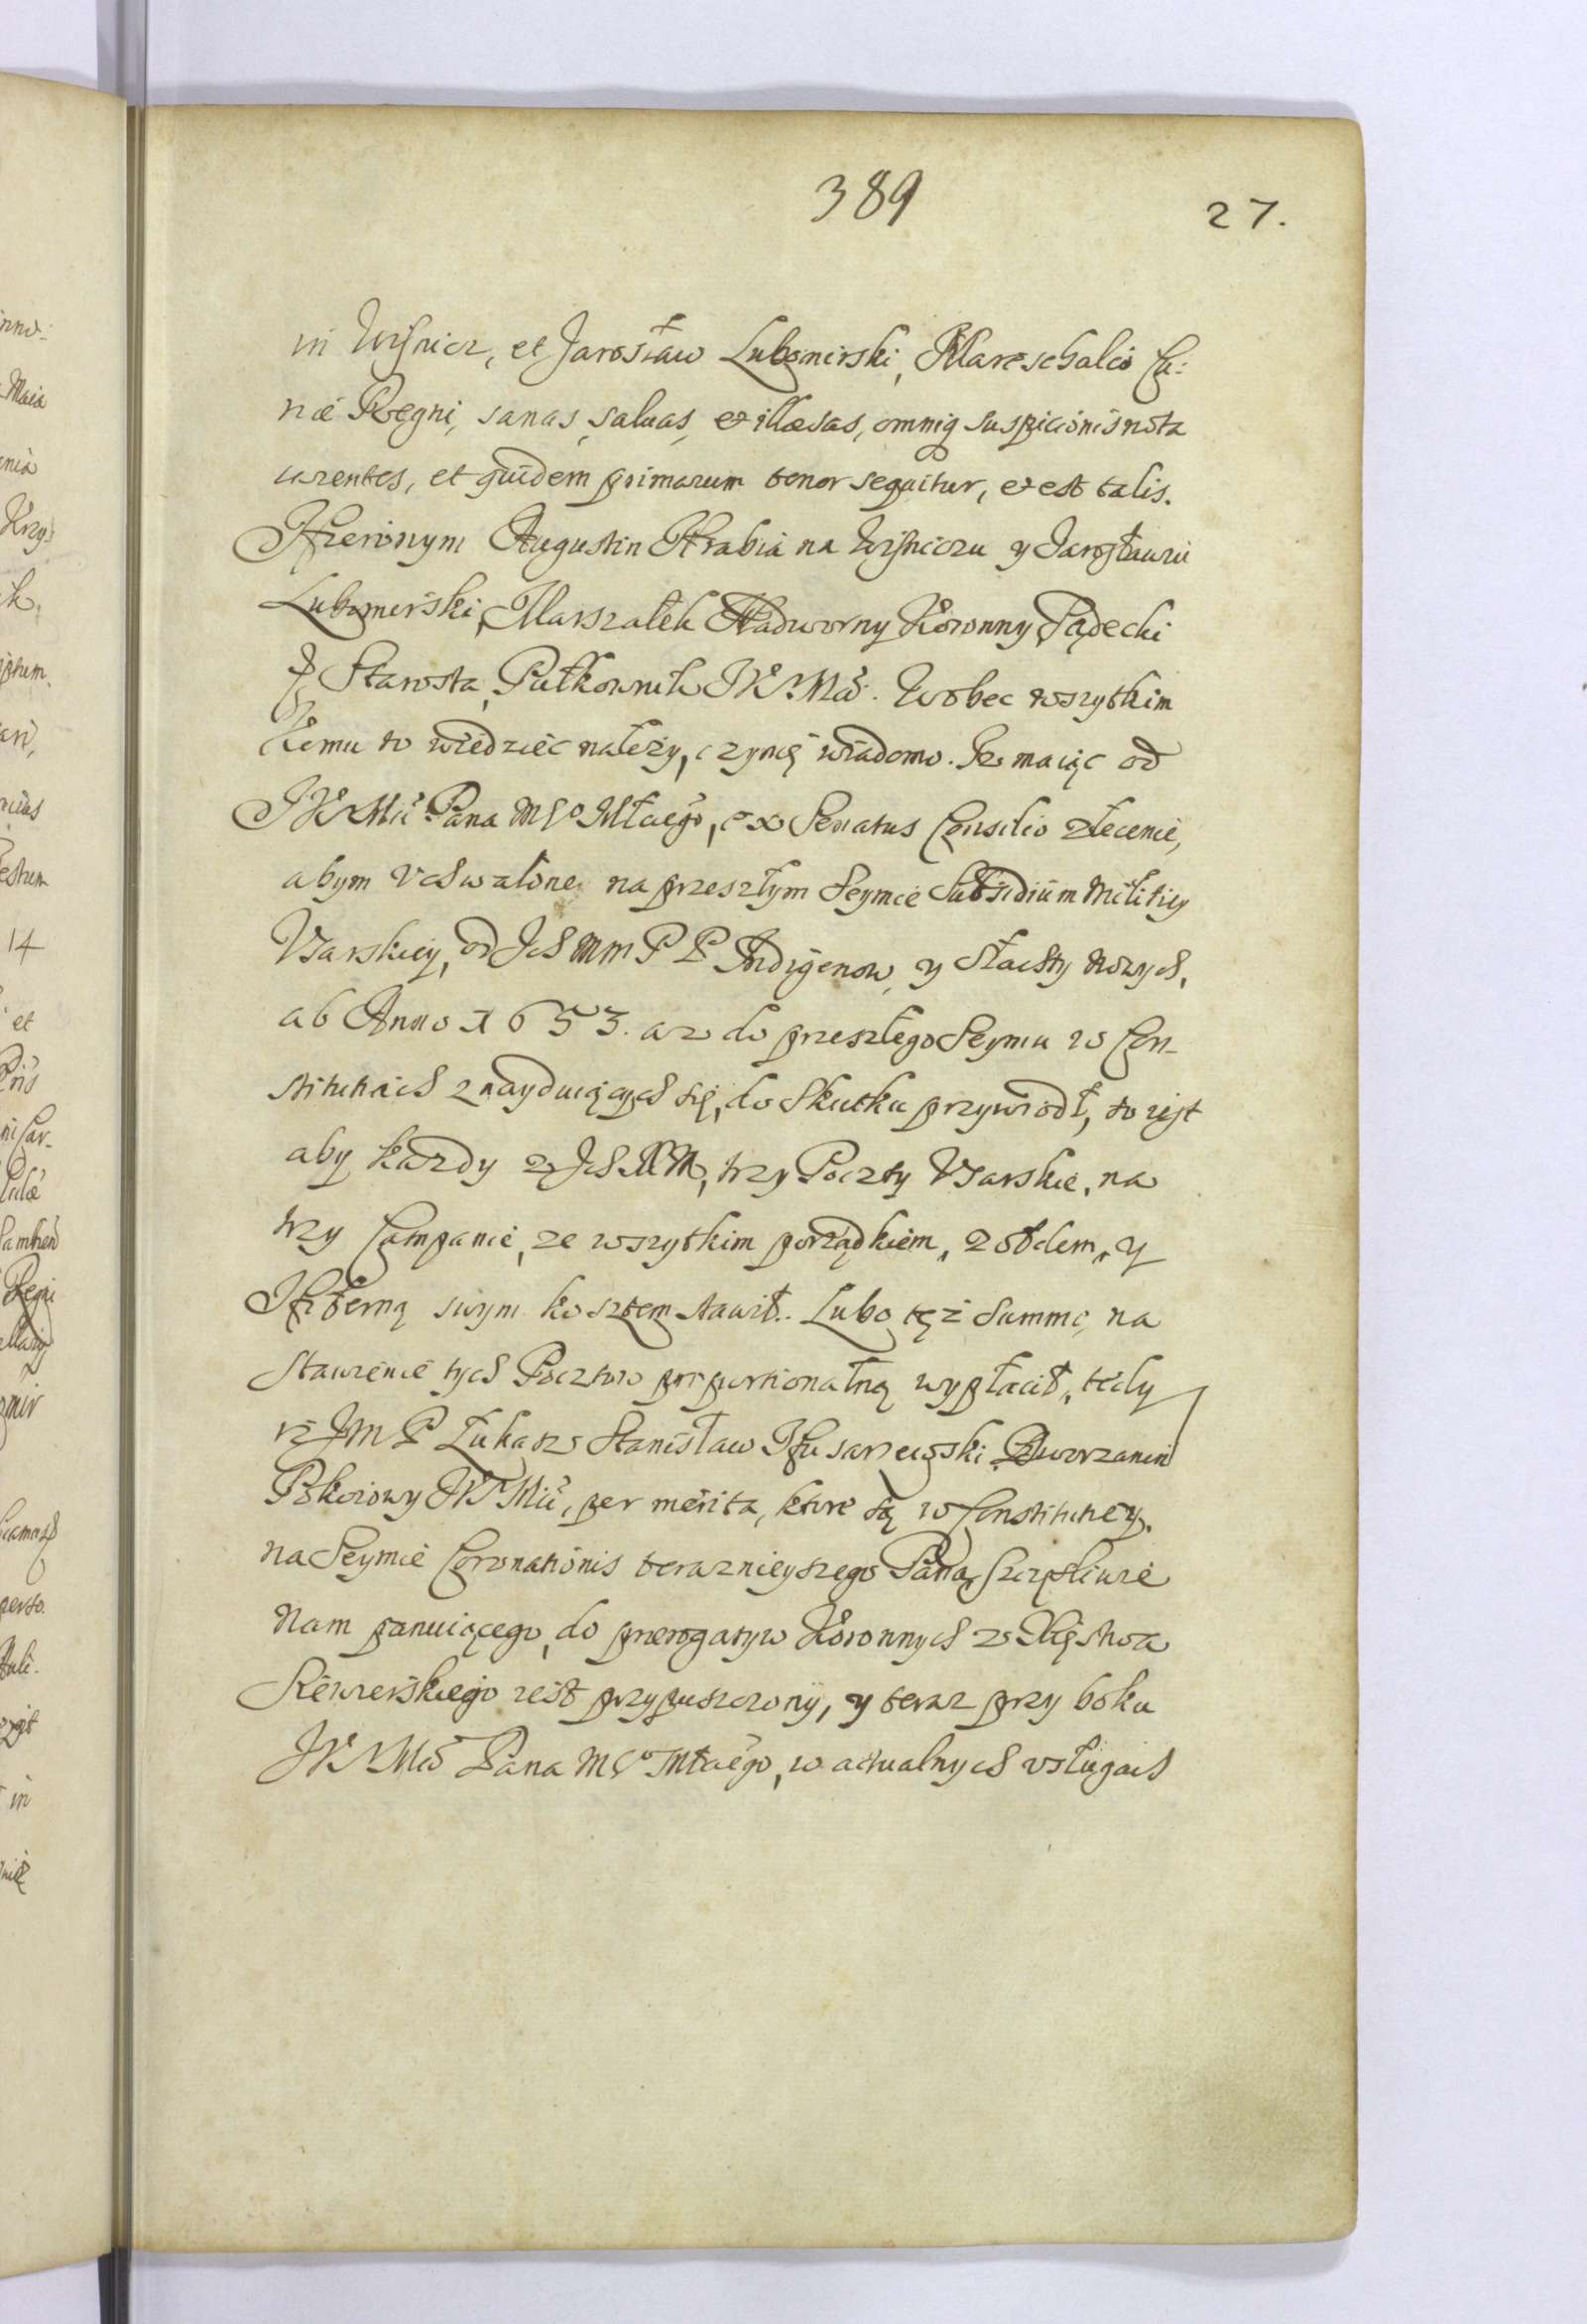 389
27.
in Wiśnicz, et Jarosław Lubomirski, Mareschalco Cu:
riæ Regni, sanas, saluas, et illæsas, omniq suspicionis nota
carentes, et quidem primarum tenor sequitur, et est talis.
Hieronym Augustin Hrabia na Wiśniczu y Jarosławiu
Lubomirski, Marszałek Nadworny Koronny, Sądecki
Starosta, Pułkownik JKMći. Wobec wszytkim
Komu to wiedzieć należy, czynię wiadomo. Iz maiąc od
JKMći Pana MVo Młciego, ex Senatus Consilio zlecenie,
abym vchwalone na przeszłym Seymie Subsidium Militiey
Vsarskiey, od Ich Mm P P Indigenow, y Slachty nowych,
ab Anno 1653. az do przeszłego Seymu w Con-
stitutiach znayduiących się, do skutku przywiodł, to iest
aby kazdy z Ich MM, trzy Poczty Vsarskie, na
trzy Campanie, ze wszytkim porządkiem, zołdem, y
Hiberną swym kosztem stawił. Lubo tęż summę, na
stawienie tych Pocztow proportionalną wypłacił, tedy
iż Jm P Łukasz Stanisław Husarzewski Dworzanin
Pokoiowy JKMći, per merita, ktore są w Constitucyey,
na Seymie Coronationis teraznieyszego Pana, szczęśliwie
Nam panuiącego, do prerogatyw Koronnych z Xięstwa
Siewierskiego iest przypuszczony, y teraz przy boku
JKMći Pana MVo Młciego, w actualnych vsługach